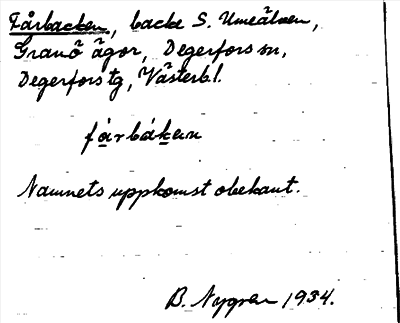 Fårbacken, backe S. Umeälven,
Granö ägor, Degerfors sn,
Degerfors tg, Västerb l.
fårbákan
Namnets uppkomst obekant.
B. Nygren 1934.